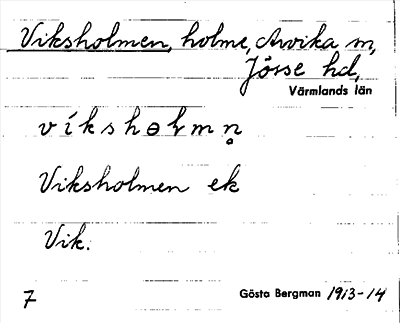 Viksholmen, holme, Arvika m,
Jösse hd,
Värmlands län
víkshɵɫmn̥
Viksholmen ek
Vik.
7 Gösta Bergman 1913-14